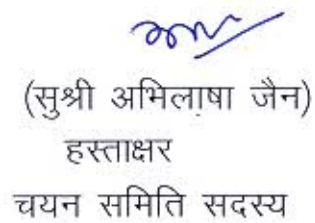 (सुश्री अभिलाषा जैन)
हस्ताक्षर
चयन समिति सदस्य